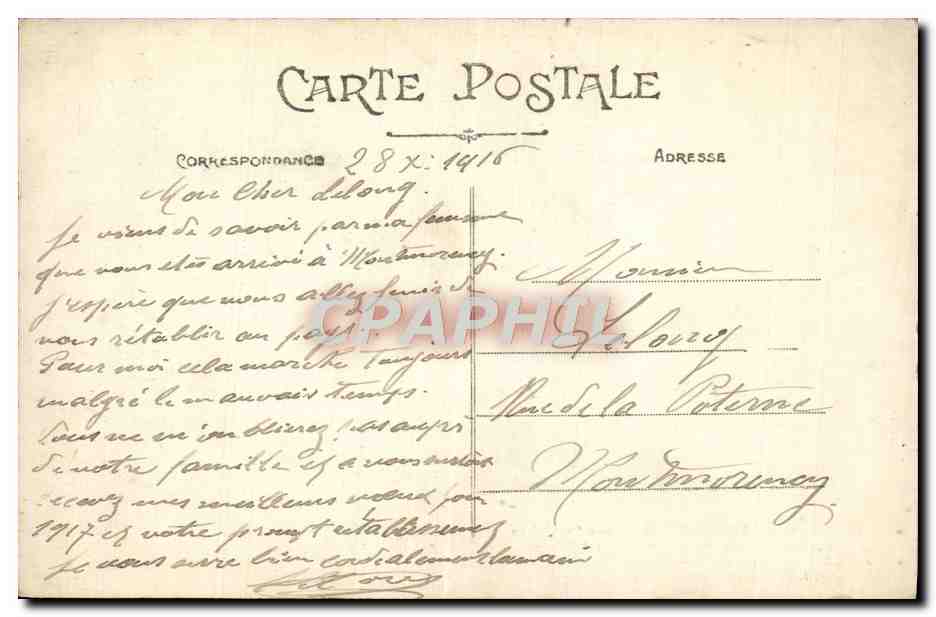 CARTE POSTALE
CORRESPONDANCE 28 X: 1916
ADRESSE
Mon Cher Lelong.
Je viens de savoir par ma femme
que vous etes arrivé à Montmorency.
J'espère que vous allez finir de
vous rétablir au pays.
Pour moi cela marche toujours
malgré le mauvais temps.
Vous ne m'oublierez pas auprès
de votre famille et à vous surtout
recevez mes meilleurs voeux pour
1917 et votre prompt rétablissement
Je vous serre bien cordialement la main
Monsieur
Lelong
Rue de la Poterne
Montmorency
CPAPHIL